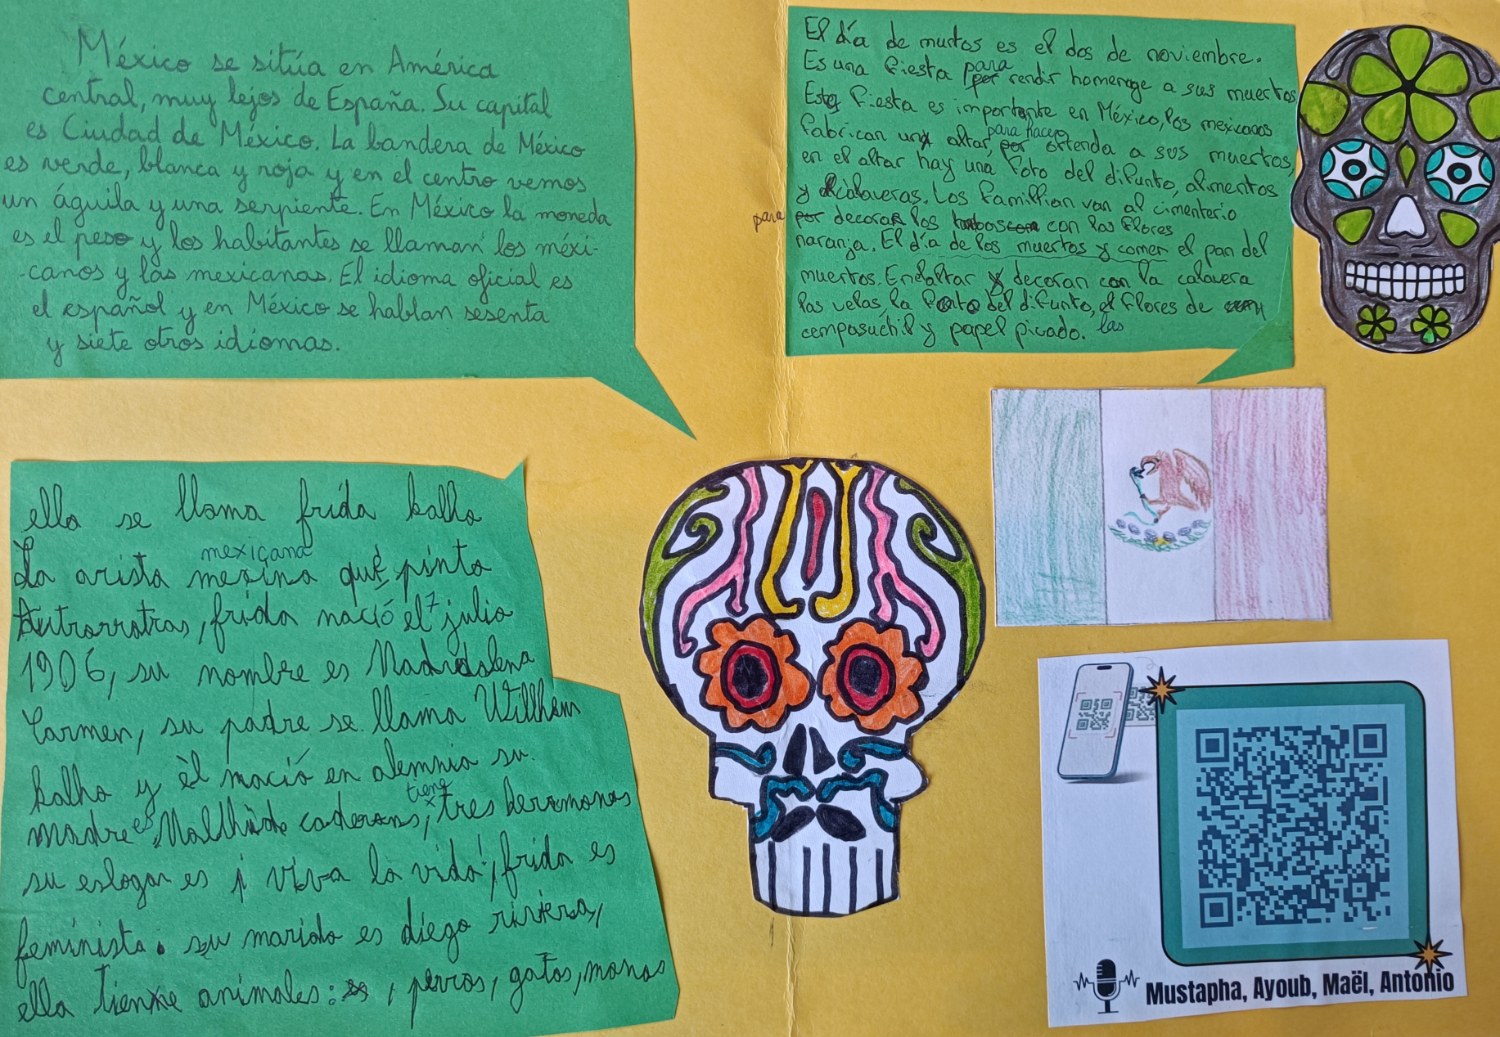 México se sitúa en América
central, muy lejos de España. Su capital
es Ciudad de México. La bandera de México
es verde, blanca y roja y en el centro vemos
un águila y una serpiente. En México la moneda
es el peso y los habitantes se llaman los méxi-
-canos y las mexicanas. El idioma oficial es
el español y en México se hablan sesenta
y siete otros idiomas.
El día de murtos es el dos de noviembre.
Es una fiesta para rendir homenage a sus muertos
Esta fiesta es importante en México, los mexicanos
fabrican un altar, para hacer ofrenda a sus muertos,
en el altar hay una foto del difunto, alimentos
y calaveras. Las familias van al cimenterio
para decorar las con las flores
naranja. El día de los muertos y comen el pan del
muertos. En el altar decoran con la calavera
las velas, la foto del difunto, el flores de
cempasuchil y papel picado. las
ella se llama frida kalho
La arista mexicana qué pinta
Autrorrotras, frida nació el 7 julio
1906, su nombre es Madgdalena
Carmen, su padre se llama Willhem
kalho y èl nació en alemnia su
madre es Mallhide caderons, tiene tres heramanas
su eslogan es ¡ viva la vida!, frida es
feminista. su marido es diego riviera,
ella tiene animales: , perros, gatos, monos
Mustapha, Ayoub, Maël, Antonio